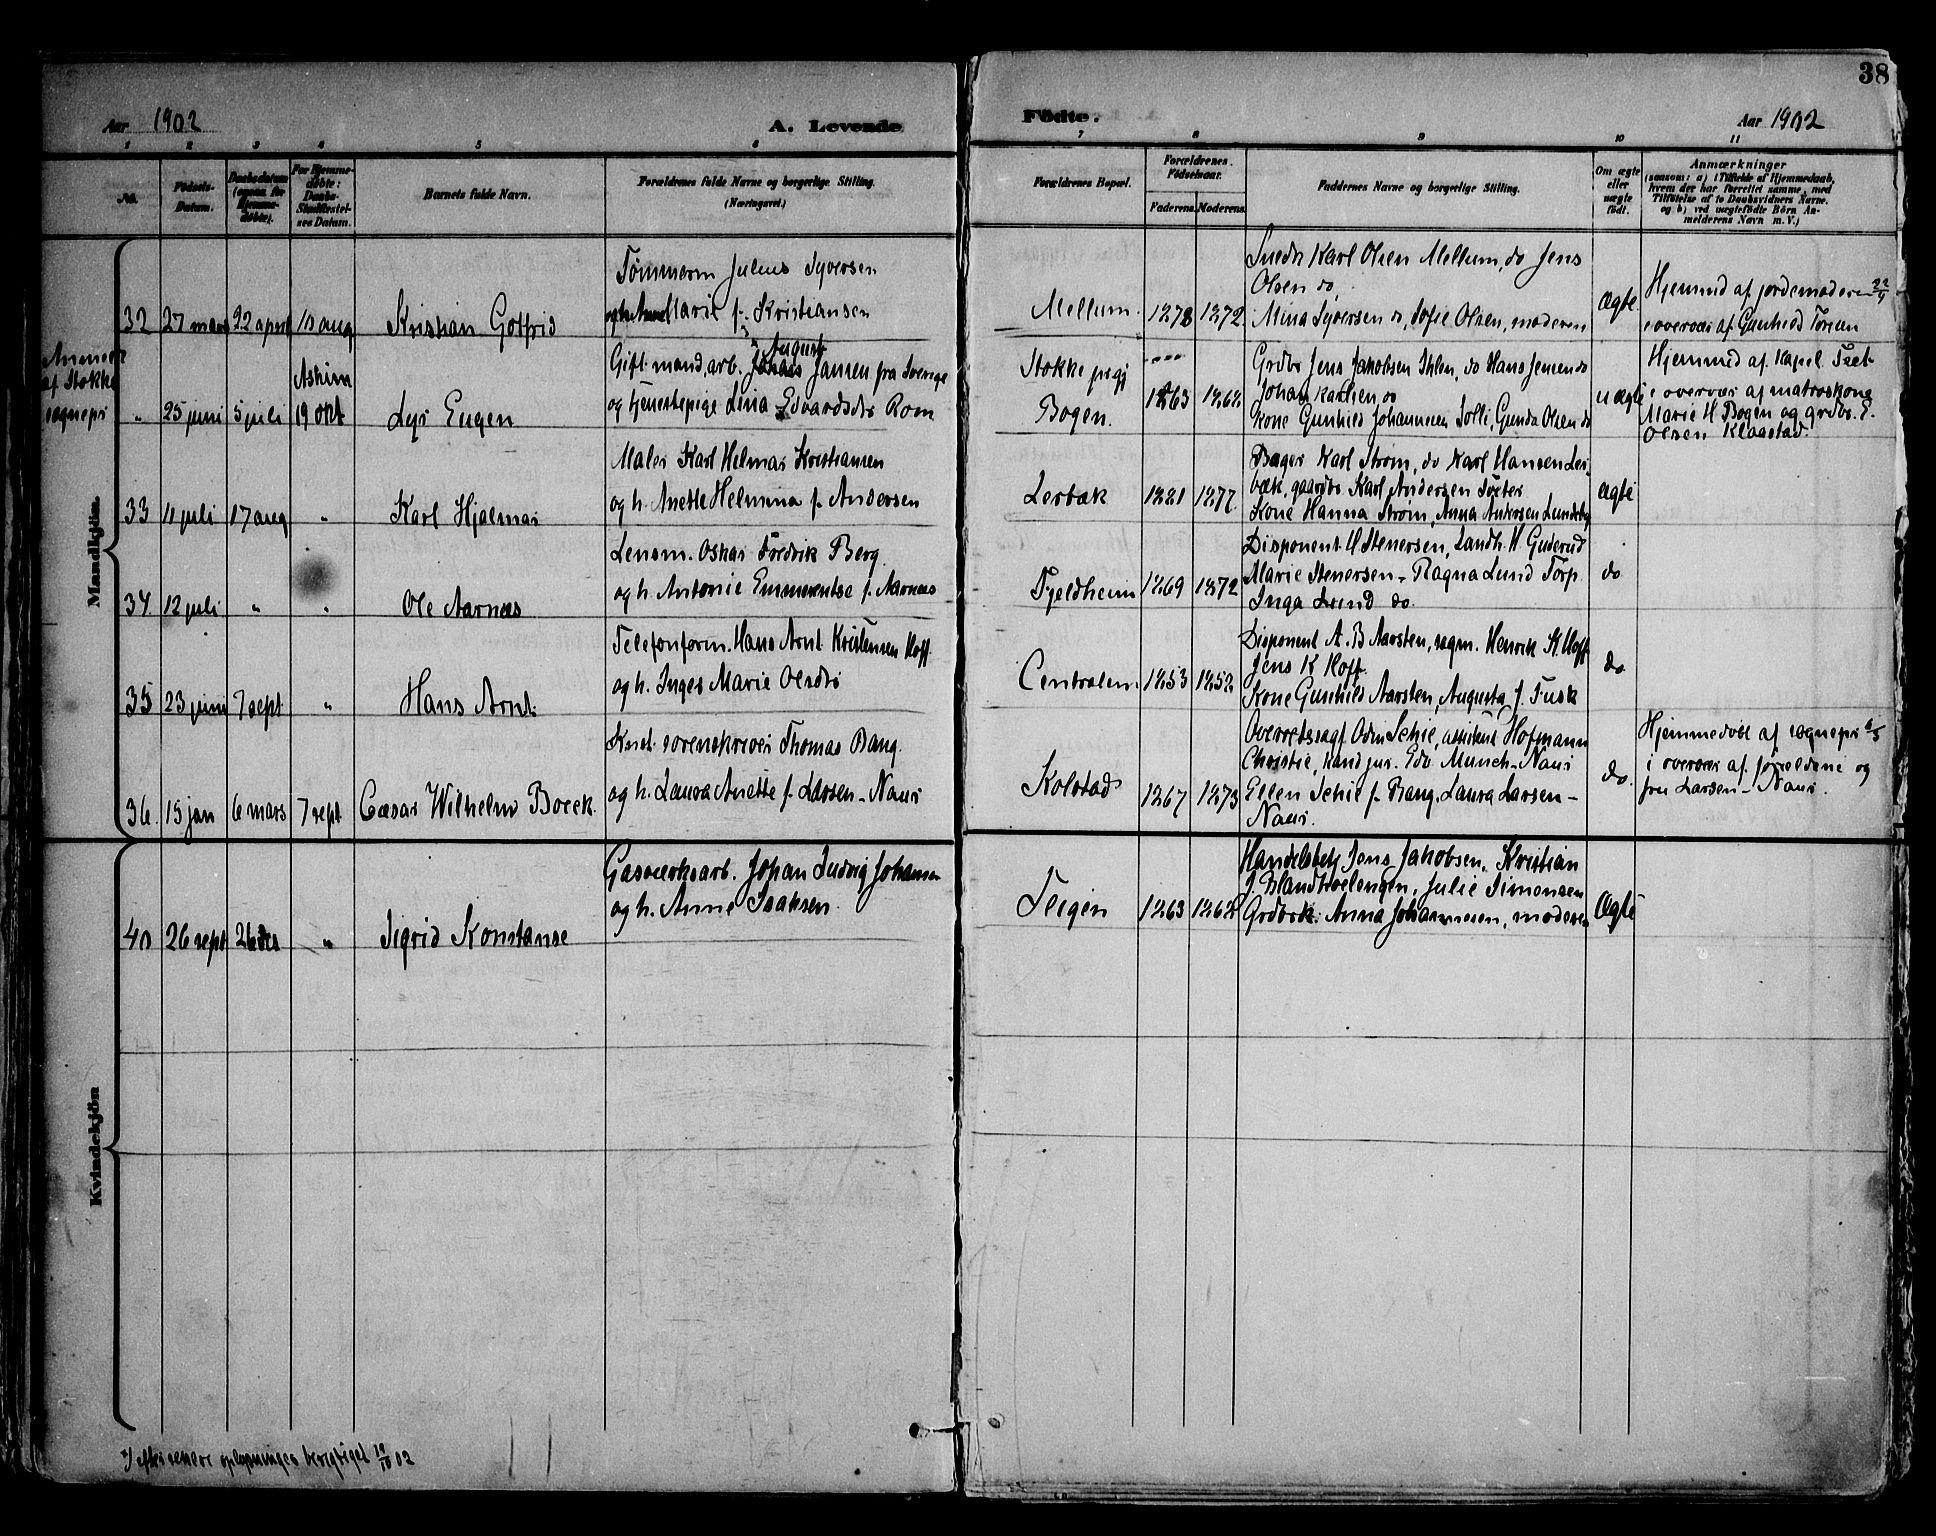 38
Aar 1902
A. Levende
Födte.
Aar 1902
1 2 3 4 5 6 7 8 9 10 11
No.
Födsels-
Datum.
Daabsdatum
(ogsaa for
Hjemme-
döbte).
For Hjemme-
döbte:
Daabs-
Stadfæstel-
ses Datum.
Barnets fulde Navn.
Forældrenes fulde Navne og borgerlige Stilling.
(Næringsvei.)
Forældrenes Bopæl.
Forældrenes
Födselsaar.
Faderens. Moderens.
Faddernes Navne og borgerlige Stilling.
Om ægte
eller
uægte
født.
Anmærkninger
(saasom: a) i Tilfælde af Hjemmedaab,
hvem der har forrettet samme, med
Tilföielse af to Daabsvidners Navne.
og b) ved uægtefödte Börn An-
melderens Navn m. V.)
Mandkjön.
32 27 mars 22 april 10 aug Kristian Gotfrid
Tömmerm Julius Syversen
Marie f. Kristiansen
Mellum. 1878 1872
Snedk Karl Olsen Mellum, do Jens
Olsen do,
Mina Syversen do, Sofie Olsen, moderen
Ægte
Hjemmed af jordemoderen 22/4
i overvær af Gunhild
Anmeldt
af Stokke
sognepr
" 25 juni 5 juli Askim
19 okt Lyr Eugen
Gift mand, arb. August Jansen fra Sverige
og tjenestepige Lina Edvardsdt Rom
Stokke prgj
Bogen. 1863 1862
Grdbr Jens Jakobsen Ihlen, do Hans Jensen do
Johan Karlsen do
Kone Gunhild Johannesen Solli, Gunda Olsen do
uægte
Hjemmed af Kapel.
i overvær af matroskone
Marie H Bogen og grdbr. E.
Olsen Klaastad.
33 11 juli 17 aug " Karl Hjalmar
Maler Karl Helmar Kristiansen
og h. Anette Helmina f. Andersen
Lerbæk 1881 1877
Bager Karl Ström, do Karl Hansen Ler-
bæk, gaardbr Karl Andersen
Kone Hanna Ström, Anna Andersen Lundeby
Ægte
34 12 juli " " Ole Aarnæs
Lensm. Oskar Fredrik Berg.
og h. Antonie Emmerentse f. Aarnæs
Fjeldheim 1869 1872
Disponent H Stenersen, Landh. H. Guderud
Marie Stenersen – Ragna Lund Torp
Inga Lund do.
do
35 23 juni 7 sept " Hans Arnt
Telefonform. Hans Arnt Kristensen Hoff
og h. Inger Marie Olsdtr
Centralen 1853 1852
Disponent A. B Aarsten, sogm. Henrik K Hoff
Jens K Hoff.
Kone Gunhild Aarsten, Augusta f. Fusk
do
36. 15 jan 6 mars 7 sept Cæsar Wilhelm Boeck.
Knst. sorenskriver Thomas Bang.
og h. Laura Anette f. Larsen – Naur
Kolstad 1867 1873
Overretssagf. Odin Schie, assistent Hofmann
Christie, Kand jur. Edv Munch – Naur
Ellen Schie f. Bang, Laura Larsen –
Naur.
do.
Hjemmedöbt af sognepr 6/3
i overvær af forældrene og
fru Larsen – Naur.
Kvindekjön
40 26 sept 26 des " Sigrid Konstanse
Gasverksarb. Johan Ludvig Johansen
og h. Anne Isaksen
Teigen 1863 1862
Handelsbetj. Jens Jakobsen, Kristian
J. Julie Simonsen
Grdbrk. Anna Johannesen, moderen
Ægte
efter senere oplysninger berigtiget 19/10 02